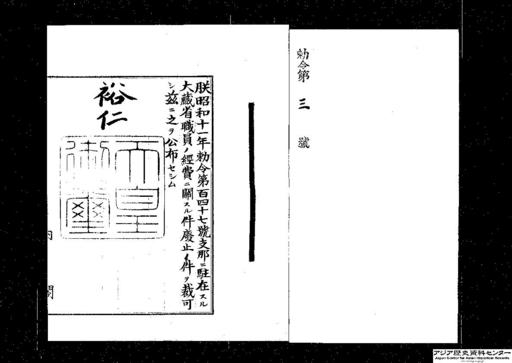 勅令第三號
朕昭和十一年勅令第百四十七號支那ニ駐在スル
大藏省職員ノ經費ニ關スル件廢止ノ件ヲ裁可
シ茲ニ之ヲ公布セシム
裕仁
天皇
御璽
内閣
アジア歴史資料センター
Japan Center for Asian Historical Records